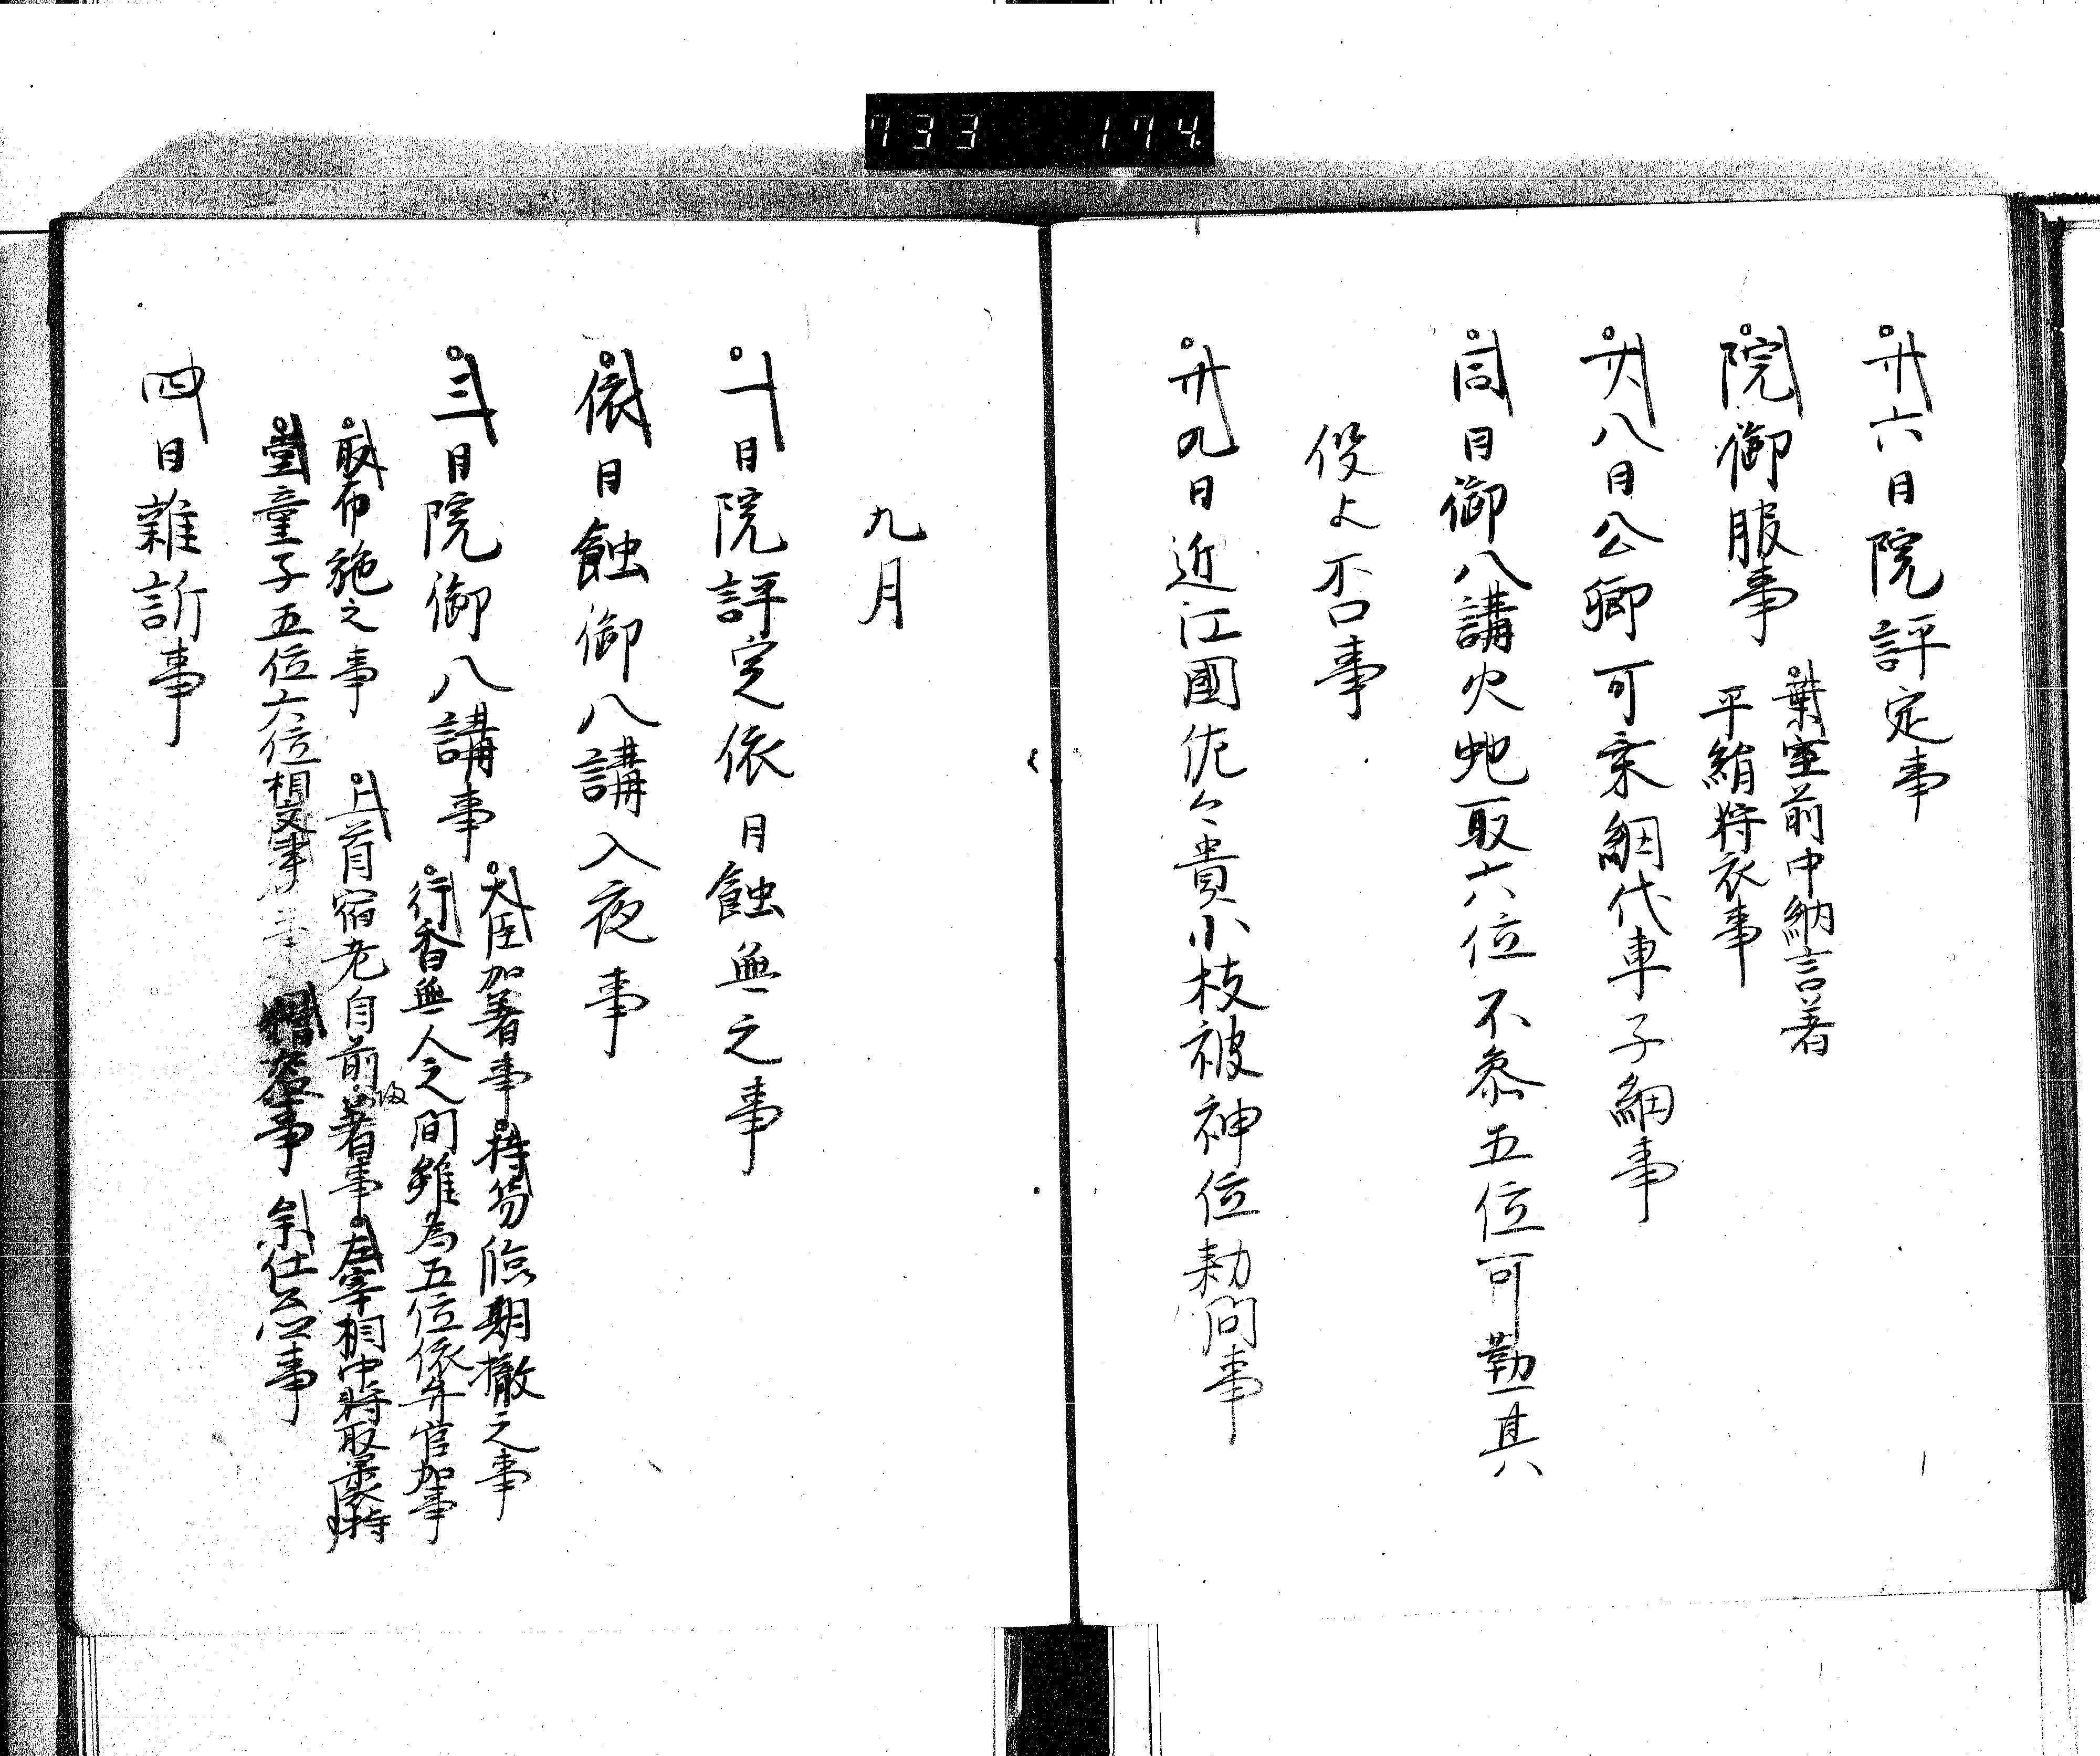 733 174
廿六日院評定事
院御服事
葉室前中納言著
平絹狩衣事
廿八日公卿可乗網代車子細事
同日御八講火虵取六位不参五位可勤其
役よ否事
廿九日近江國佐々貴小枝被神位勅問事
九月
一日院評定依日蝕無之事
依日蝕御八講入夜事
三日院御八講事
大臣加著事 持笏臨期撤之事
行香無人之間雖為五位依弁官加事
取布施之事 上首宿老自前著事 左宰相中将取裹持
堂童子五位六位相交事 事 余仕公事
四日雜訴事